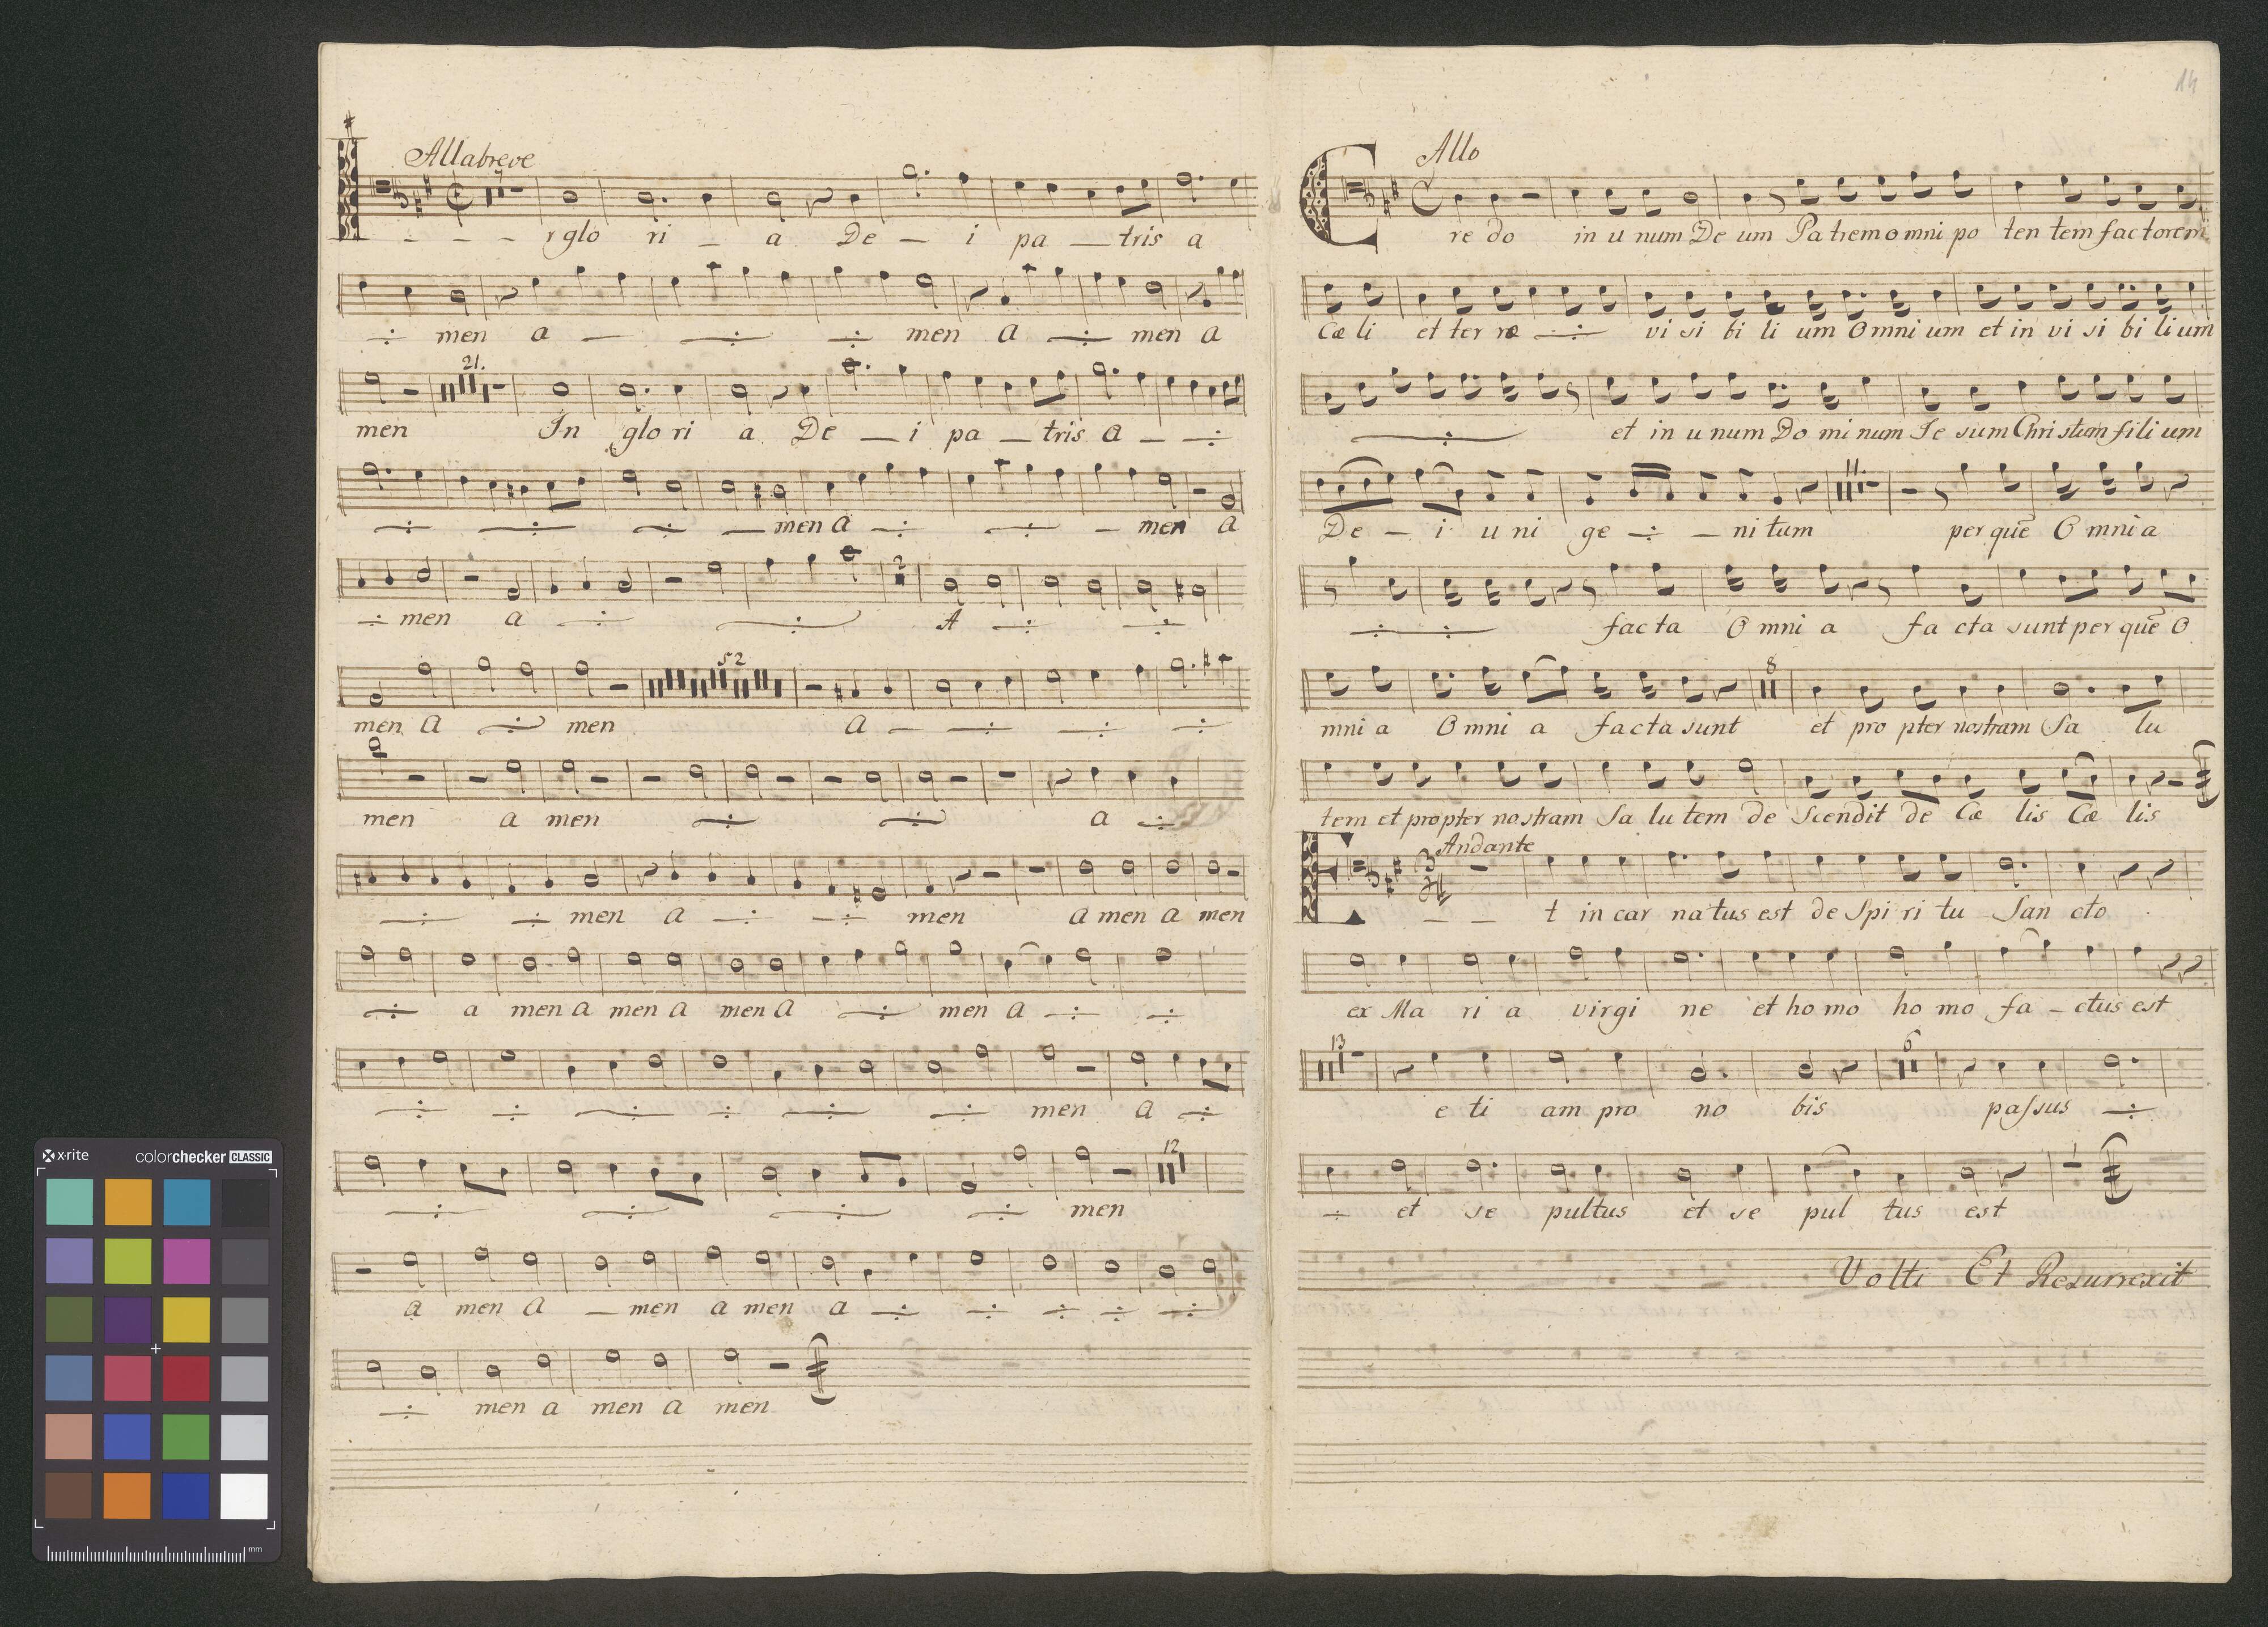 Allabreve
7
r glo ri _ a De _ i pa _ tris a
men a _ men a men a
21.
men In glo ri a De _ i pa _ tris a _
_ men a _ men a
2
men a A
52
men a men a _
men a men a
men a men a men a men
a men a men a men a men a
men a
12
men
a men a _ men a men a
men a men a men
14
Allo
C re do in u num De um Pa trem o mni po ten tem fac torem
Cæ li et ter ræ vi si bi li um O mni um et in vi si bi li um
et in u num Do mi num Je sum Chri stum fi li um
11.
De _ i u ni ge _ ni tum per quē O mni a
fac ta O mni a fa cta sunt per quē O
8
mni a O mni a fa cta sunt et pro pter nostram Sa lu
tem et propter nostram Sa lu tem de Scendit de Cæ lis Cæ lis
Andante
E t in car na tus est de Spi ri tu San cto
ex Ma ri a virgi ne et ho mo ho mo fa _ ctus est
13
6
e ti am pro no bis paſsus
et se pultus et se pul tus est
Volti Et Resurrexit
x·rite colorchecker CLASSIC
mm